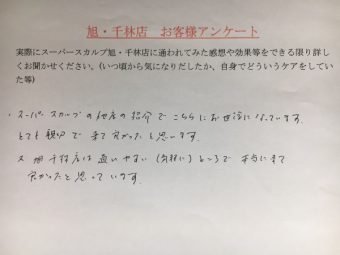 旭・千林店 お客様アンケート
実際にスーパースカルプ旭・千林店に通われてみた感想や効果等をできる限り詳し
くお聞かせください。(いつ頃から気になりだしたか、自身でどういうケアをしてい
た等)
・スーパースカルプの他店の紹介でこちらにお世話になっています。
とても親切で来て良かったと思います。
又、旭千林店は通いやすい(気軽に)ところで本当に来て
良かったと思っています。